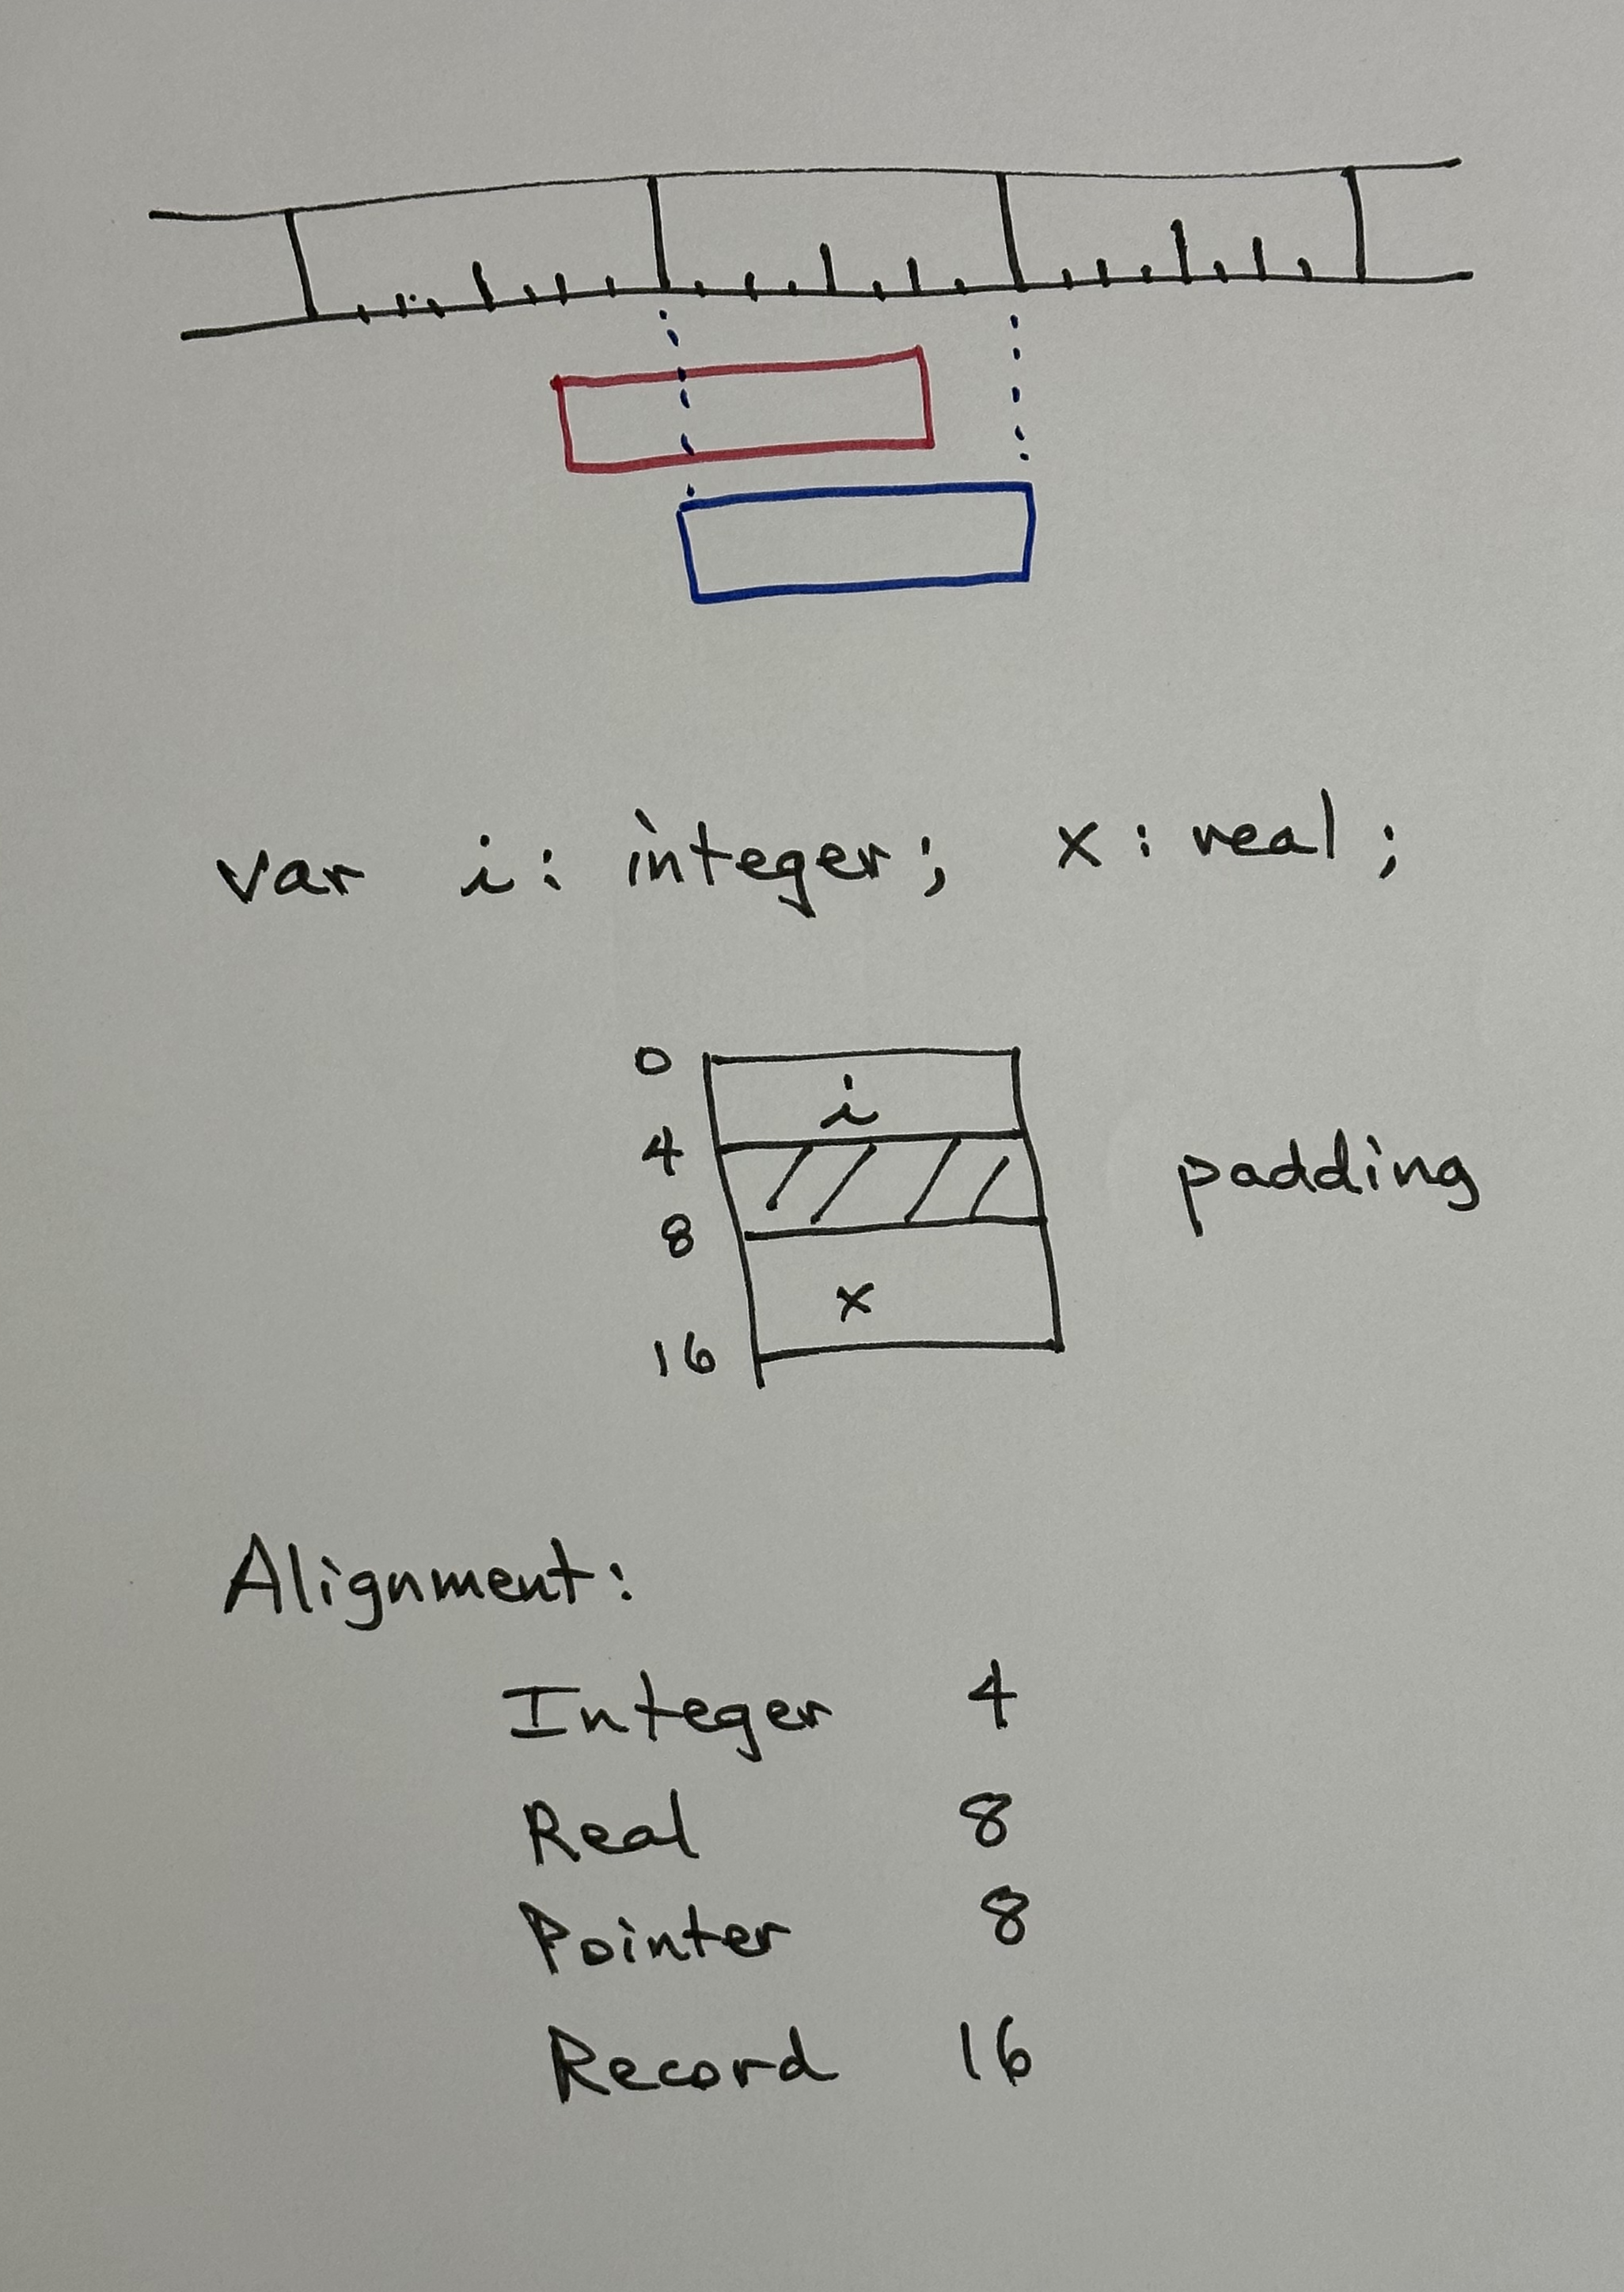 var i: integer; x: real;
0
i
4
padding
8
x
16
Alignment:
Integer 4
Real 8
Pointer 8
Record 16